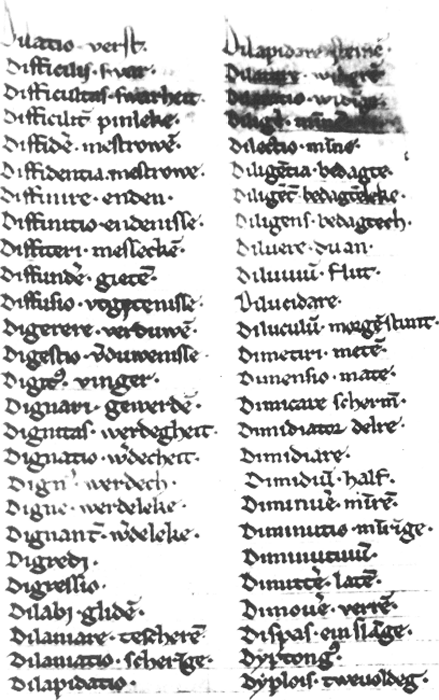 Dilatio · verst.
Difficilis · swar ·
Difficultas · swarheit ·
Difficilit̄ pinleke ·
Diffidē · mestrowē ·
Diffidentia mestrowe ·
Diffinire · enden ·
Diffinitio · endenisse ·
Diffiteri · mesleckē ·
Diffundē · gietē ·
Diffusio · vtgetenisse ·
Digerere · verduwē ·
Digestio · v̄duwenisse ·
Digitꝰ · vinger ·
Dignari · gewerdē ·
Dignitas · werdegheit ·
Dignatio · w̄decheit ·
Dignꝰ · werdech ·
Digne · werdeleke ·
Dignant̄ · w̄deleke ·
Digredi ·
Digressio ·
Dilabi · glidē ·
Dilaniare · tescherē ·
Dilaniatio · scherīge ·
Dilapidatio ·
Dilapidare · steinē ·
Dilatare · widerē
Dilatatio · widīge
Diligē · minnē
Dilectio · mīne ·
Diligētia · bedagte ·
Diligēt̄ bedagteleke ·
Diligens · bedagtech ·
Diluere · duan ·
Diluuiū · flut ·
Dilucidare ·
Diluculū · morgēstunt ·
Dimetiri · metē ·
Dimensio · mate ·
Dimicare schermē ·
Dimidiator delre ·
Dimidiare ·
Dimidiū · half ·
Diminuē · mīrē ·
Diminutio · mīrīge ·
Diminutiuū ·
Dimittē · latē ·
Dimouē · verrē ·
Dispas · einslage ·
Dyptongꝰ ·
Dyplois · tweuoldeg ·